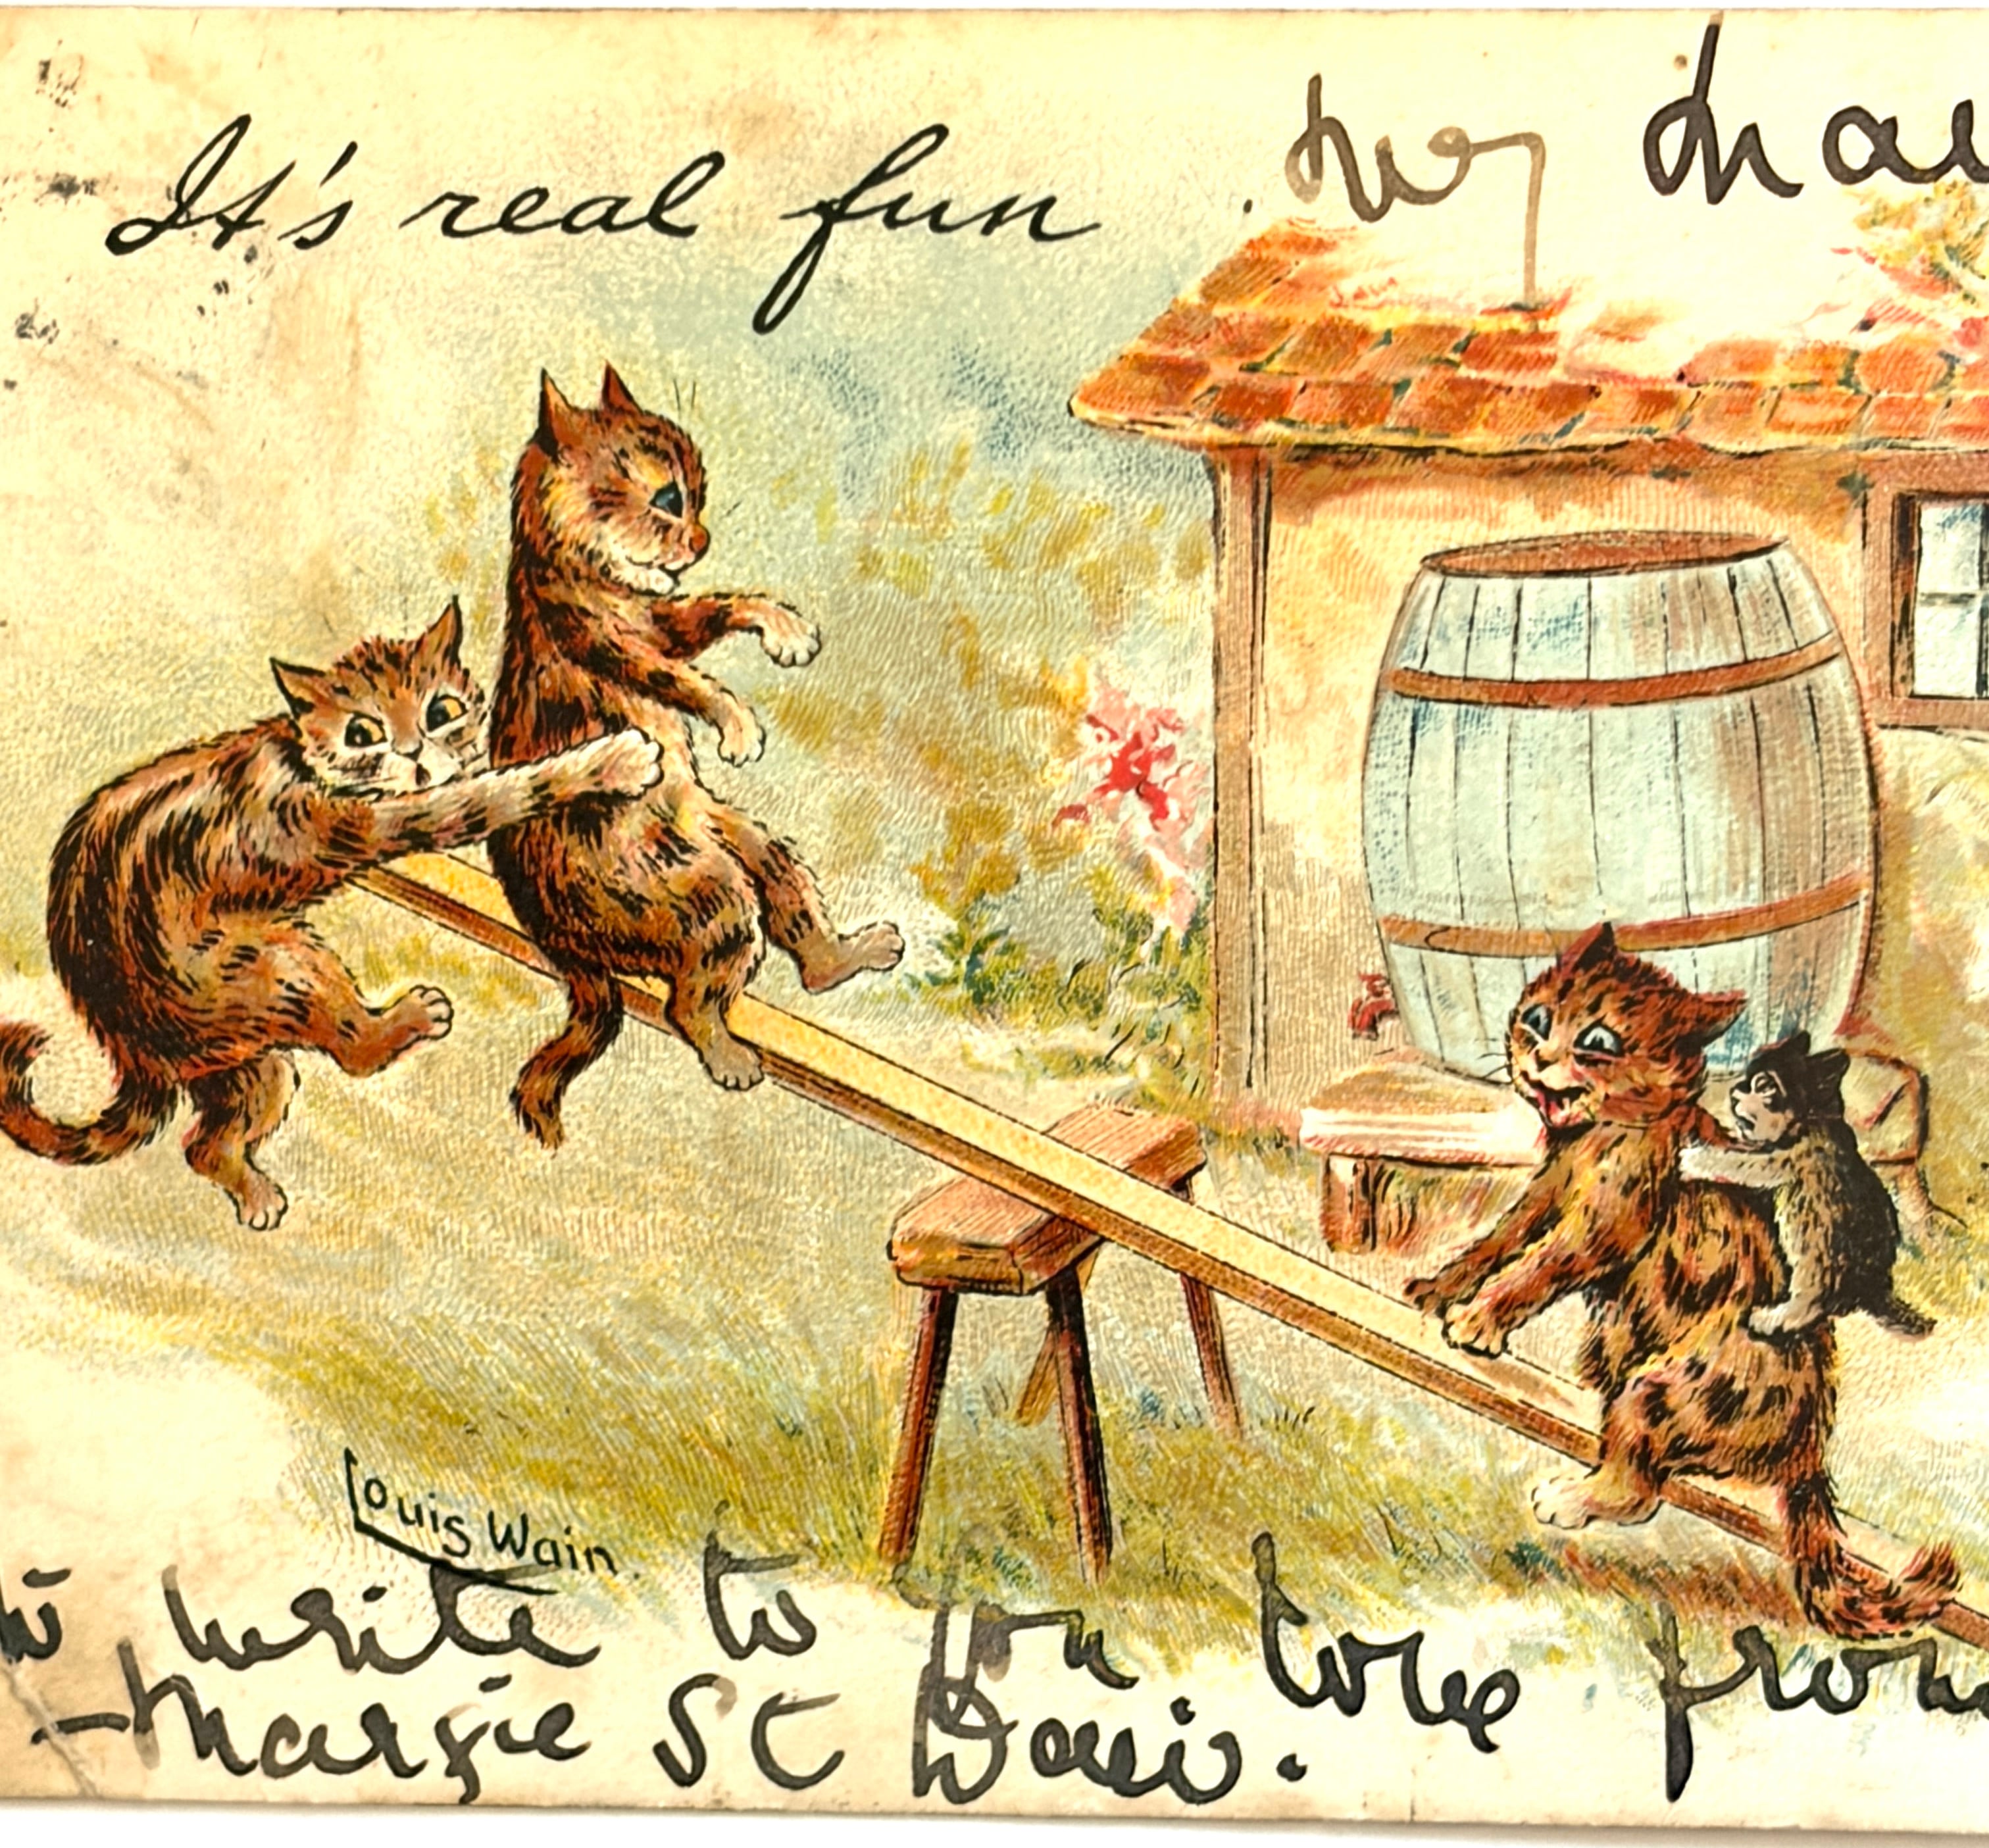 It's real fun
Louis Wain
to write to you love from
Margie St Davis.